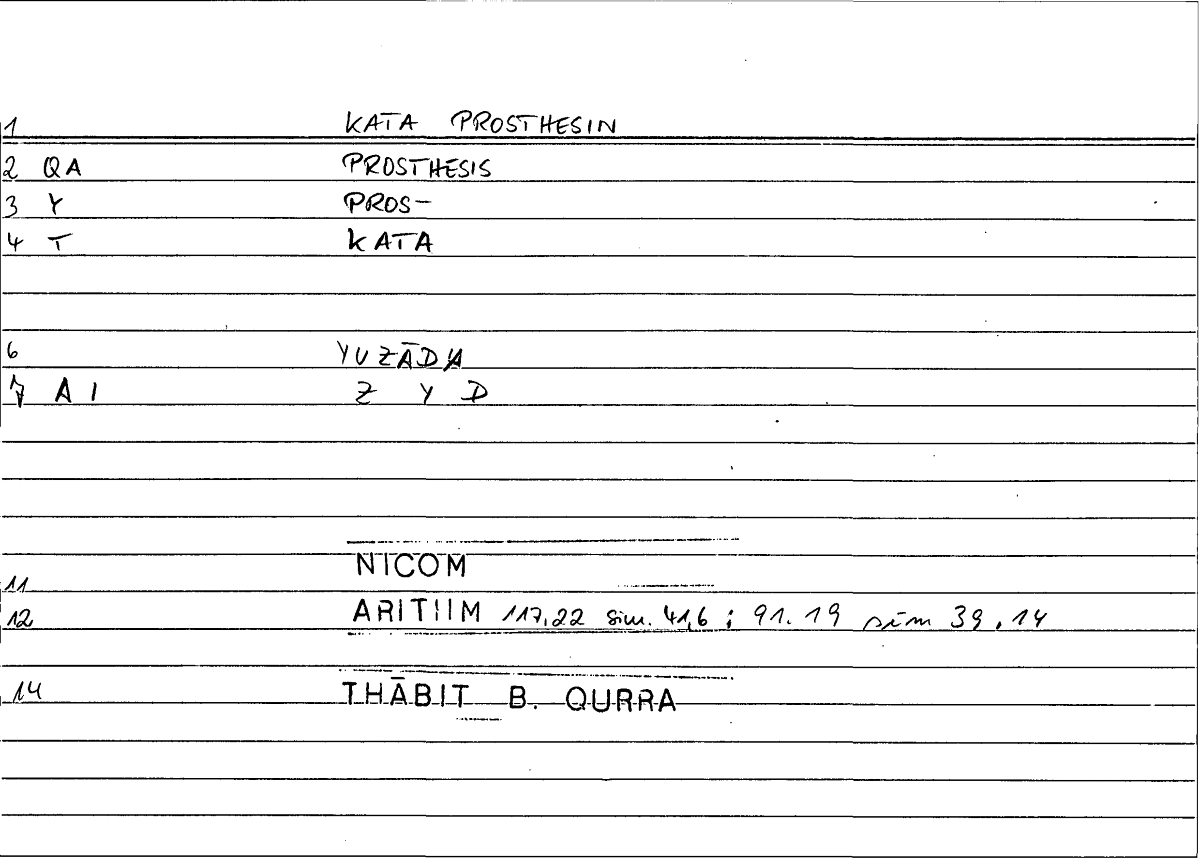 1 KATA PROSTHESIN
2 QA PROSTHESIS
3 Y PROS-
4 T KATA
6 YUZĀDA
7 A I Z Y D
11 NICOM
12 ARITIIM 117,22 sim. 41,6 ; 91.19 sim 39.14
14 THĀBIT B. QURRA